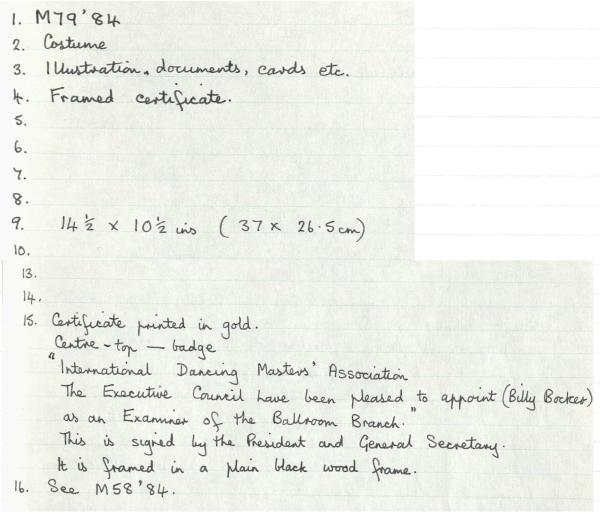 1. M79'84
2. Costume
3. Illustration, documents, cards etc.
4. Framed certificate.
5.
6.
7.
8.
9. 14 ½ x 10 ½ ins (37 x 26.5cm)
10.
13.
14.
15. Certificate printed in gold.
Centre - top — badge
"International Dancing Masters' Association
The Executive Council have been pleased to appoint (Billy Bocker)
as an Examiner of the Ballroom Branch."
This is signed by the President and General Secretary.
It is framed in a plain black wood frame.
16. See M58'84.